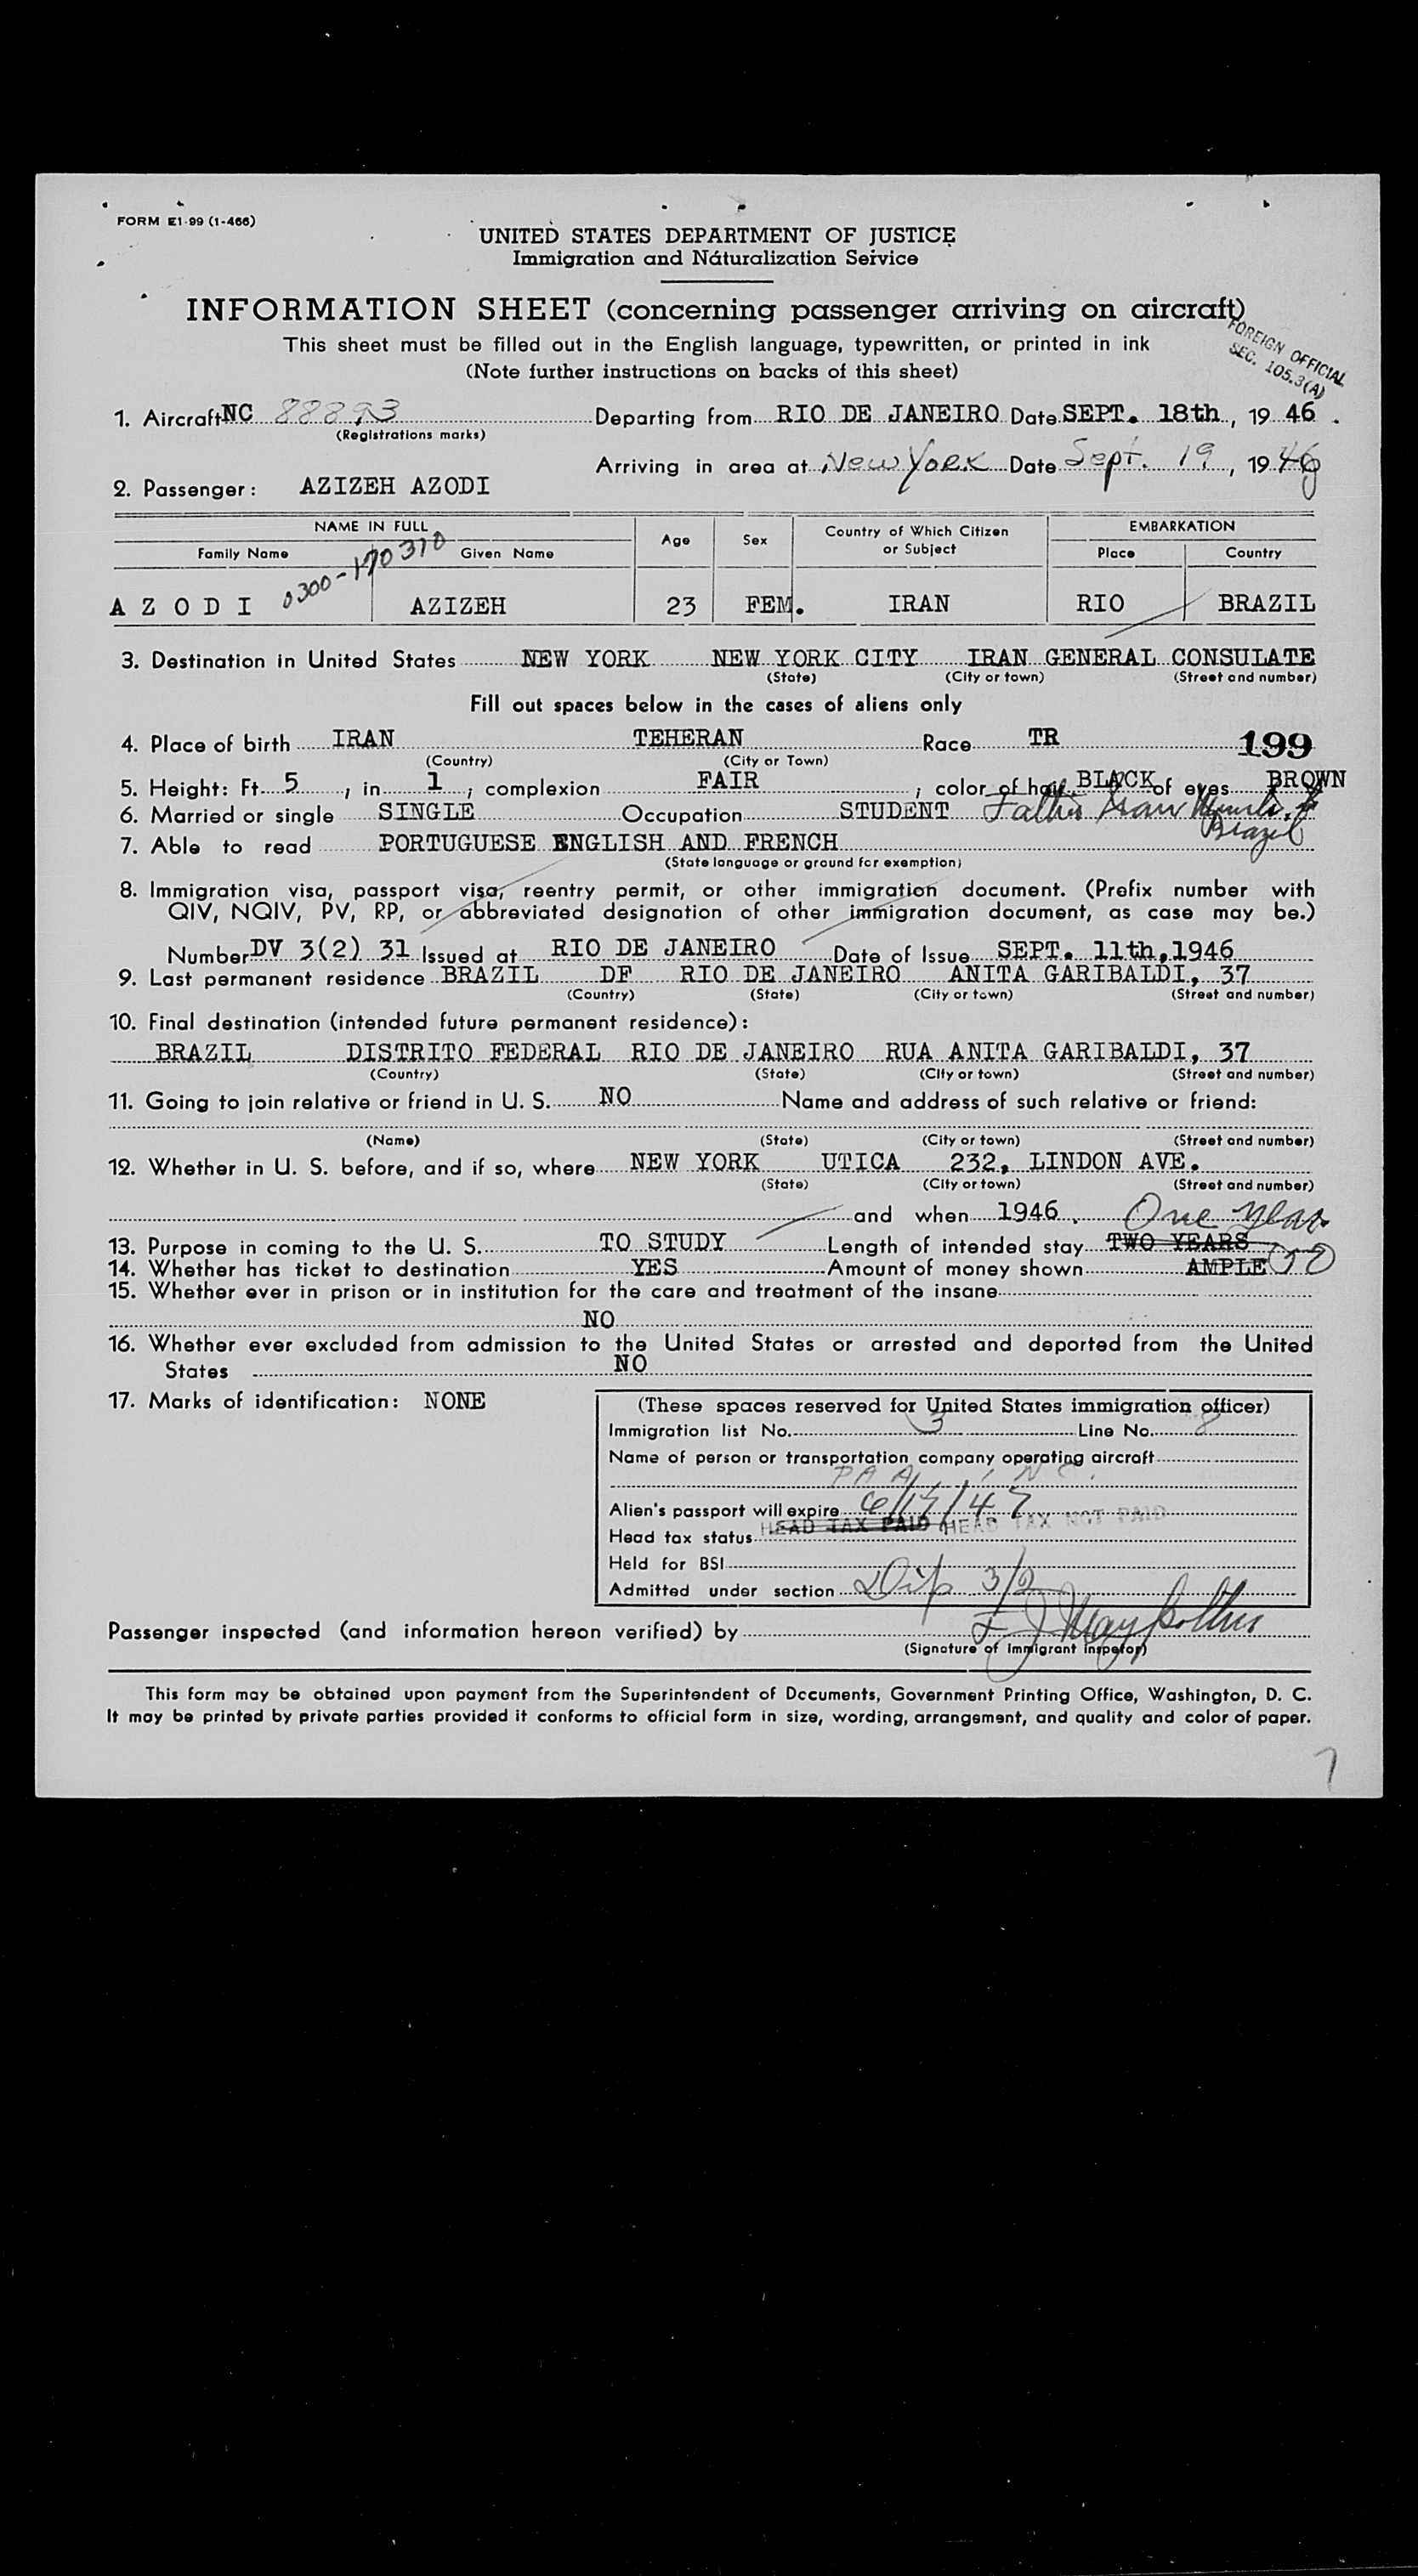 FORM E1-99 (1-466)
UNITED STATES DEPARTMENT OF JUSTICE
Immigration and Naturalization Service
INFORMATION SHEET (concerning passenger arriving on aircraft)
This sheet must be filled out in the English language, typewritten, or printed in ink
(Note further instructions on backs of this sheet)
FOREIGN OFFICIAL
SEC. 105.3(A)
1. Aircraft NC 88893 Departing from RIO DE JANEIRO Date SEPT. 18th, 1946.
(Registrations marks)
Arriving in area at New York Date Sept. 19, 1946
2. Passenger: AZIZEH AZODI
NAME IN FULL Age Sex Country of Which Citizen or Subject EMBARKATION
Family Name Given Name Place Country
0300-170310
AZODI AZIZEH 23 FEM. IRAN RIO BRAZIL
3. Destination in United States NEW YORK NEW YORK CITY IRAN GENERAL CONSULATE
(State) (City or town) (Street and number)
Fill out spaces below in the cases of aliens only
4. Place of birth IRAN TEHERAN Race TR 199
(Country) (City or Town)
5. Height: Ft. 5, in 1; complexion FAIR; color of hair BLACK of eyes BROWN
6. Married or single SINGLE Occupation STUDENT Father Iran to
Brazil
7. Able to read PORTUGUESE ENGLISH AND FRENCH
(State language or ground for exemption)
8. Immigration visa, passport visa, reentry permit, or other immigration document. (Prefix number with
QIV, NQIV, PV, RP, or abbreviated designation of other immigration document, as case may be.)
Number DV 3(2) 31 Issued at RIO DE JANEIRO Date of Issue SEPT. 11th, 1946
9. Last permanent residence BRAZIL DF RIO DE JANEIRO ANITA GARIBALDI, 37
(Country) (State) (City or town) (Street and number)
10. Final destination (intended future permanent residence):
BRAZIL DISTRITO FEDERAL RIO DE JANEIRO RUA ANITA GARIBALDI, 37
(Country) (State) (City or town) (Street and number)
11. Going to join relative or friend in U. S. NO Name and address of such relative or friend:
(Name) (State) (City or town) (Street and number)
12. Whether in U. S. before, and if so, where NEW YORK UTICA 232, LINDON AVE.
(State) (City or town) (Street and number)
and when 1946. One year
13. Purpose in coming to the U. S. TO STUDY Length of intended stay TWO YEARS
14. Whether has ticket to destination YES Amount of money shown AMPLE
15. Whether ever in prison or in institution for the care and treatment of the insane
NO
16. Whether ever excluded from admission to the United States or arrested and deported from the United
States NO
17. Marks of identification: NONE
(These spaces reserved for United States immigration officer)
Immigration list No. 3 Line No. 8
Name of person or transportation company operating aircraft
P A A
Alien's passport will expire
Head tax status HEAD TAX PAID HEAD TAX NOT PAID
Held for BSI
Admitted under section Dip 3/2
Passenger inspected (and information hereon verified) by
(Signature of Immigrant Inspetor)
This form may be obtained upon payment from the Superintendent of Documents, Government Printing Office, Washington, D. C.
It may be printed by private parties provided it conforms to official form in size, wording, arrangement, and quality and color of paper.
7